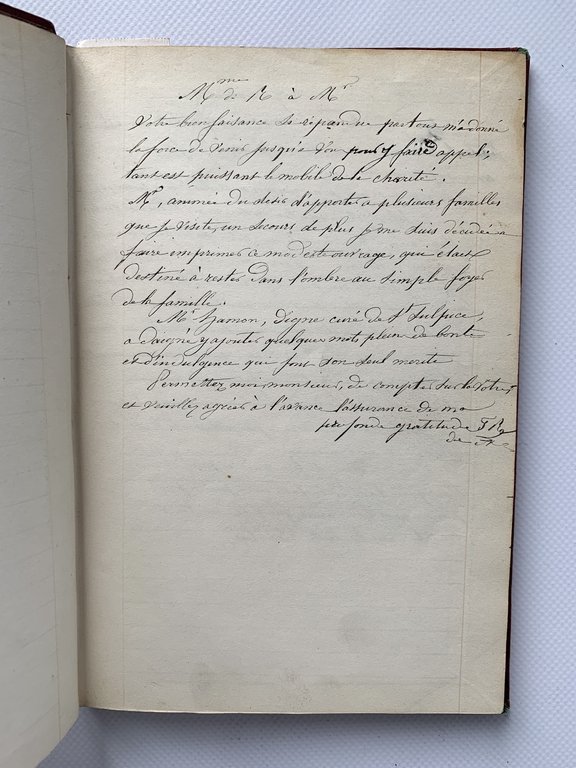 Mme de R à Mr
Votre bienfaisance se répandue partous m'a donné
la force de venir jusqu'à Vou pour y faire appel;
tant est puissant le mobile de la charité.
Mr, animée du desir d'apporter a plusieurs familles
que je visite, un secours de plus je me suis décidée à
faire imprimer ce modeste ouvrage, qui était
destiné à rester dans l'ombre au simple foyer
de la famille.
Mr Hamon, digne curé de St Sulpice,
a daigné y ajouter quelques mots plein de bonté
et d'indulgence qui font son seul merite
Permettez moi, monsieur, de compter sur la votre,
et veuillez agréer à l'avance l'assurance de ma
profonde gratitude
de